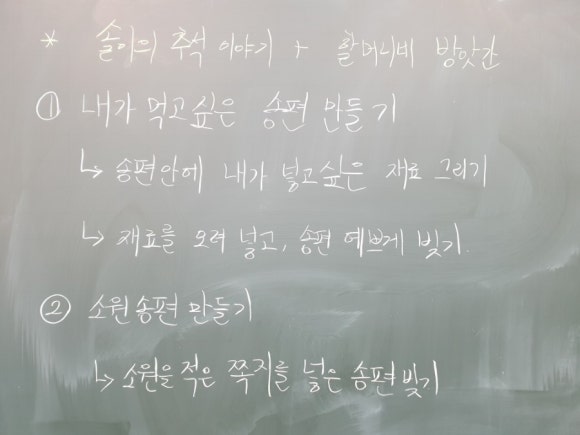 * 솔이의 추석 이야기 + 할머니네 방앗간
① 내가 먹고싶은 송편 만들기
↳ 송편안에 내가 넣고싶은 재료 그리기
↳ 재료를 오려 넣고, 송편 예쁘게 빚기.
② 소원송편 만들기
↳ 소원을 적은 쪽지를 넣은 송편 빚기